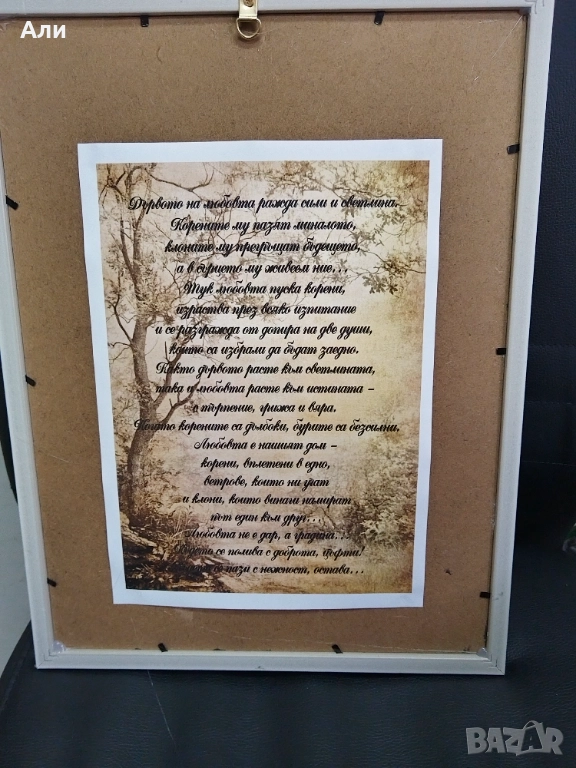 Али
Дървото на любовта ражда сили и светлина.
Корените му пазят миналото,
клоните му прегръщат бъдещето,
а в сърцето му живеем ние...
Тук любовта пуска корени,
израства през всяко изпитание
и се разгражда от допира на две души,
които са избрали да бъдат заедно.
Както дървото расте към светлината,
така и любовта расте към истината –
с търпение, грижа и вяра.
Когато корените са дълбоки, бурите са безсилни.
Любовта е нашият дом –
корени, вплетени в едно,
ветрове, които ни учат
и клони, които винаги намират
път един към друг...
Любовта не е дар, а градина...
Където се полива с доброта, цъфти!
се пази с нежност, остава...
BAZAR